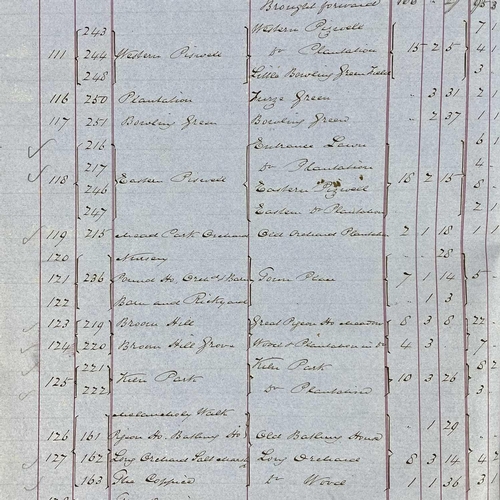 Brought forward 106 - 27 98 3
243 Western Pigwell 7 1
111 244 Western Pigwell Do Plantation 15 2 5 4 1
248 Little Bowling Green Field 3
116 250 Plantation Furze Green - 3 31 2 1
117 251 Bowling Green Bowling Green - 2 37 1 1
216 Entrance Lawn 6 1
217 Do Plantation 4
118 246 Eastern Pigwell Eastern Pigwell 18 2 15 8
247 Eastern Do Plantation 2 1
119 215 Mead Park Orchard Old Orchard Plantation 2 1 18 1 1
120 Nursery - - 28
121 236 Pound Ho. Orchd & Barn Town Place 7 1 14 5 -
122 Barn and Rickyard - 1 3
123 219 Broom Hill Great Pigeon Ho. Meadow 8 3 8 22 -
124 220 Broom Hill Grove Wood & Plantation in do 4 3 7 -
221 Kiln Park 8 2
125 222 Kiln Park Do Plantation 10 3 26 3
Melancholy Walk
126 161 Pigeon Ho. Bathing Ho. Old Bathing House - 1 29
127 162 Long Orchard Salt Marsh Long Orchard 8 3 14 4 2
163 The Coppice Do Wood 1 1 36 3 1